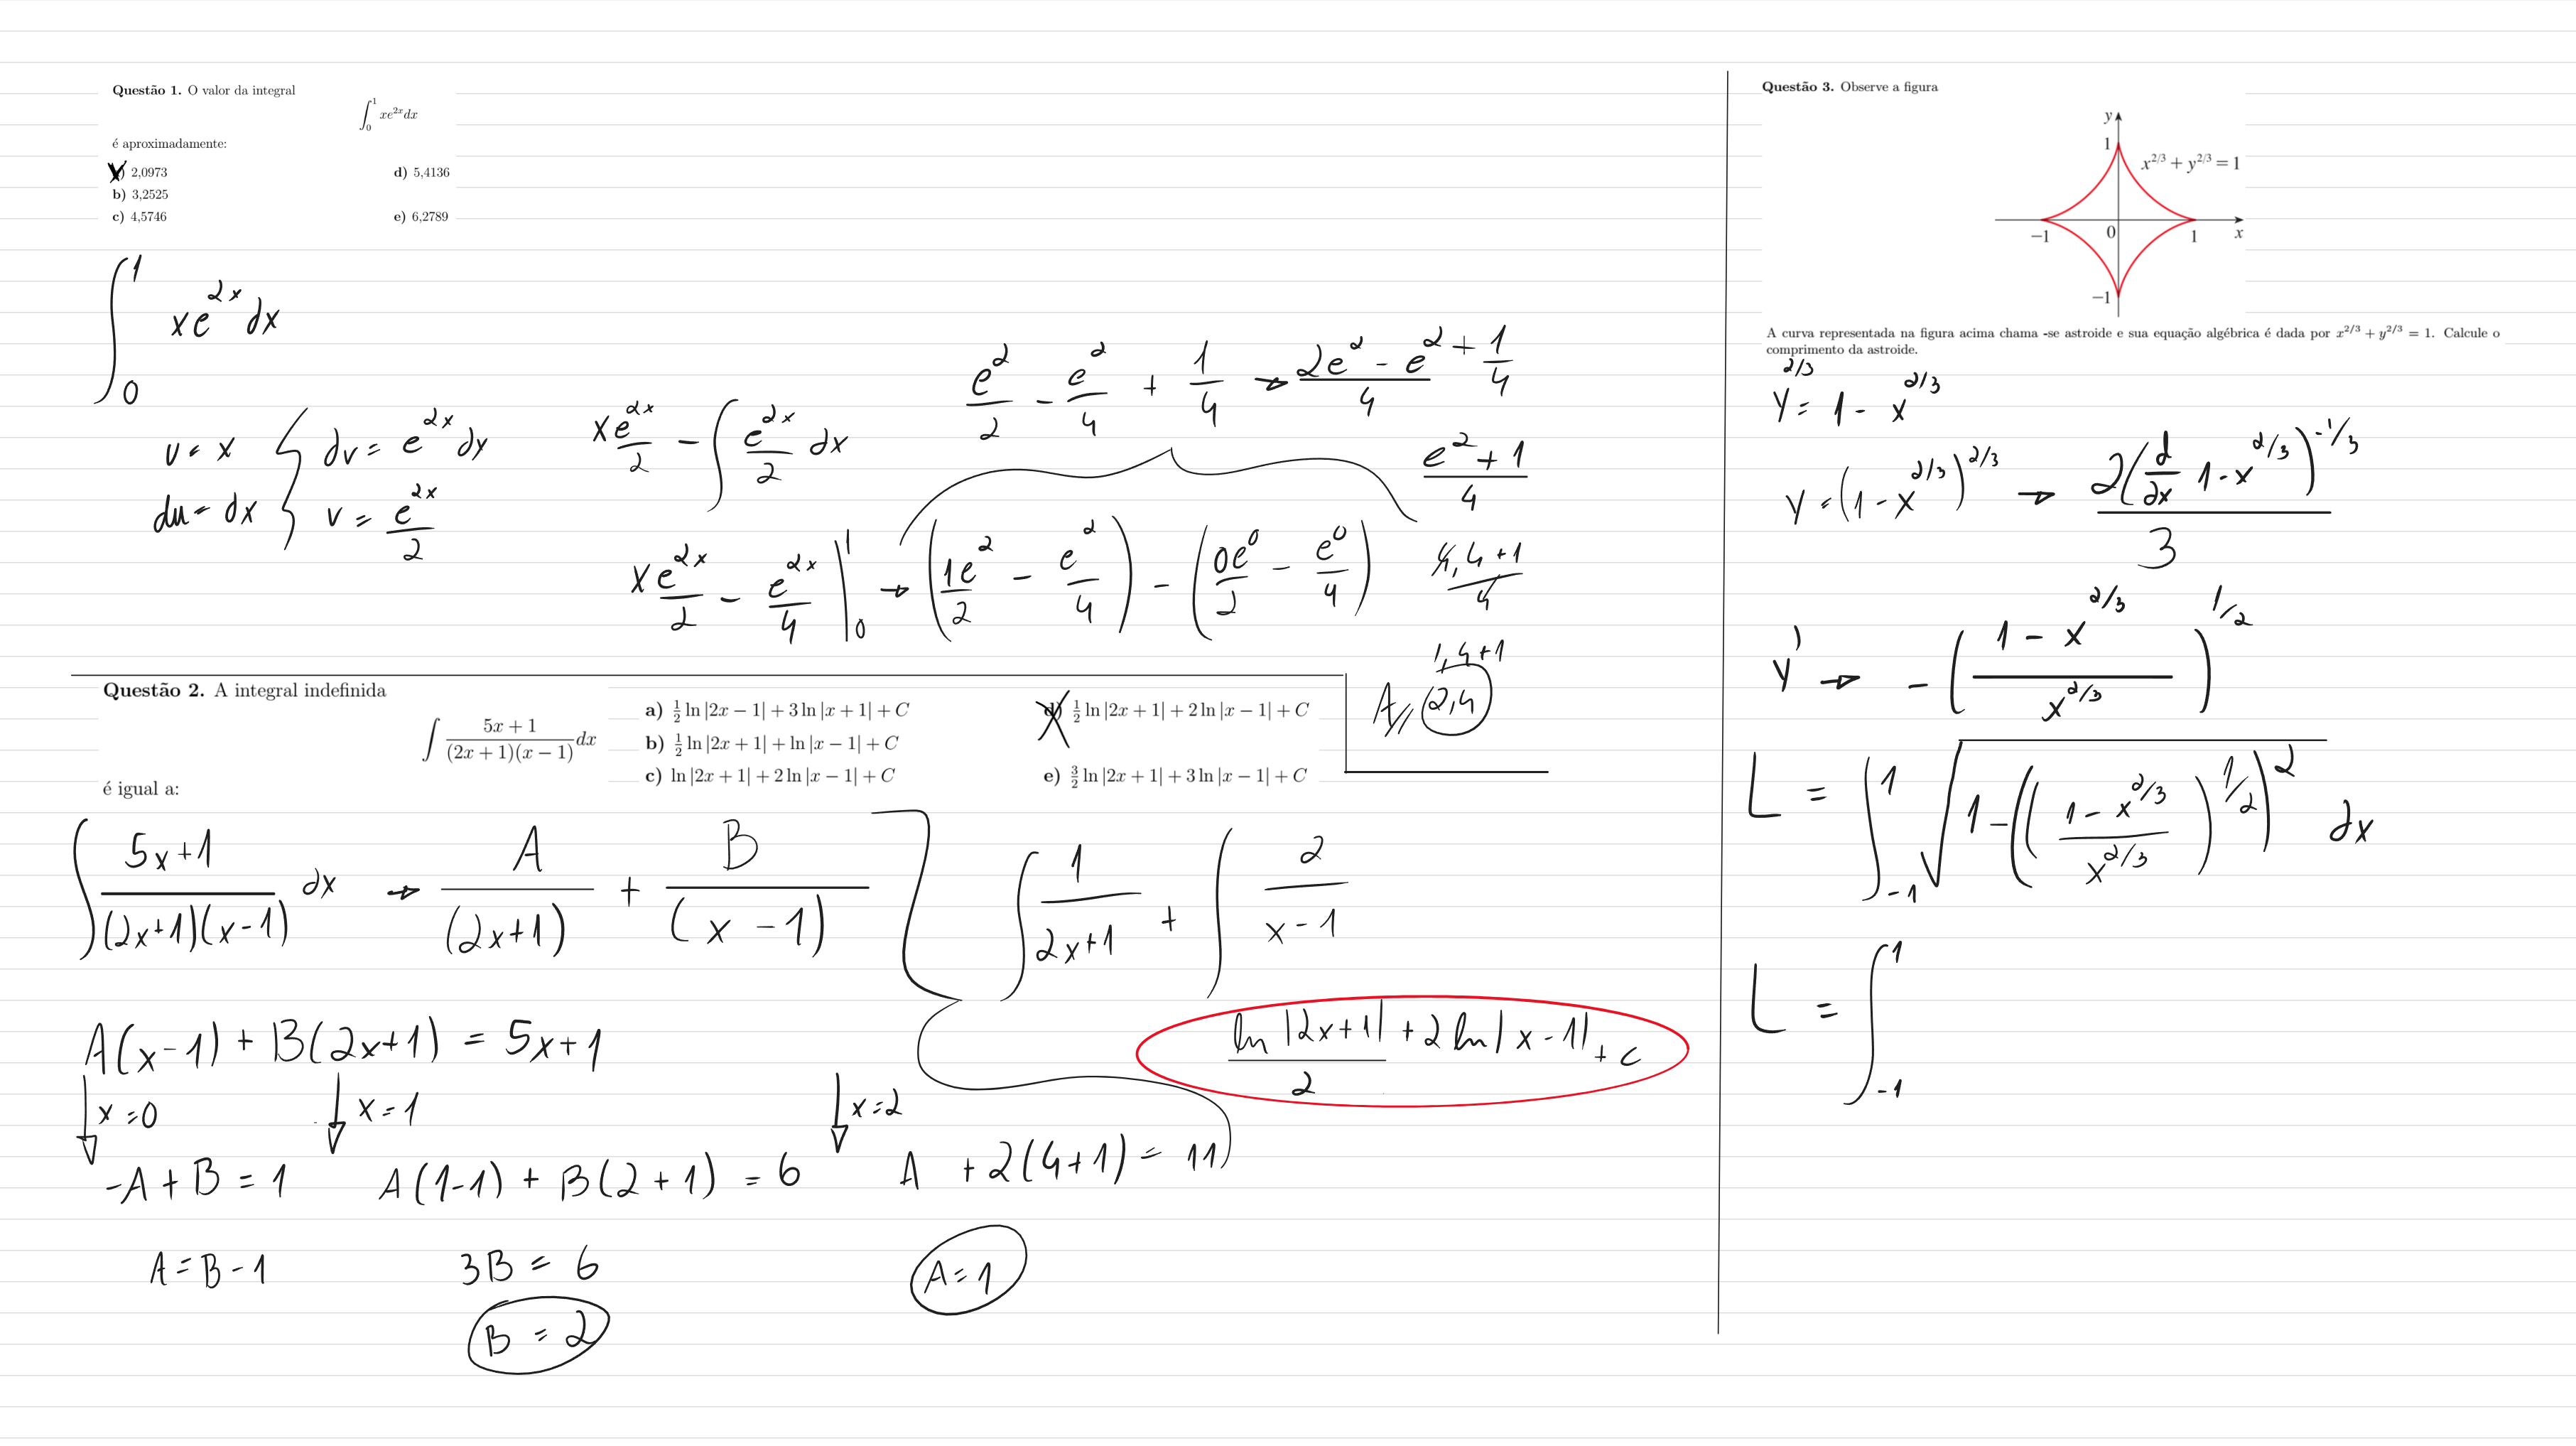 Questão 1. O valor da integral
∫₀¹ xe^{2x} dx
é aproximadamente:
2,0973
b) 3,2525
c) 4,5746
d) 5,4136
e) 6,2789
∫₀¹ xe^{2x} dx
u = x { dv = e^{2x} dx
du = dx { v = e^{2x}/2
xe^{2x}/2 - ∫ e^{2x}/2 dx
xe^{2x}/2 - e^{2x}/4 |₀¹ → (1e^2/2 - e^2/4) - (0e^0/2 - e^0/4)
e^2/2 - e^2/4 + 1/4 → (2e^2 - e^2)/4 + 1/4
(e^2 + 1)/4
1,4+1
A// 2,4
Questão 2. A integral indefinida
∫ (5x + 1)/((2x + 1)(x − 1)) dx
é igual a:
a) 1/2 ln |2x − 1| + 3 ln |x + 1| + C
b) 1/2 ln |2x + 1| + ln |x − 1| + C
c) ln |2x + 1| + 2 ln |x − 1| + C
d) 1/2 ln |2x + 1| + 2 ln |x − 1| + C
e) 3/2 ln |2x + 1| + 3 ln |x − 1| + C
∫ (5x+1)/((2x+1)(x-1)) dx → A/(2x+1) + B/(x-1)
A(x-1) + B(2x+1) = 5x+1
x=0 x=1 x=2
-A+B = 1 A(1-1) + B(2+1) = 6 A + 2(4+1) = 11
A = B-1 3B = 6 A=1
B = 2
∫ 1/(2x+1) + ∫ 2/(x-1)
ln|2x+1|/2 + 2 ln|x-1| + c
Questão 3. Observe a figura
y
1
x^{2/3} + y^{2/3} = 1
−1 0 1 x
−1
A curva representada na figura acima chama -se astroide e sua equação algébrica é dada por x^{2/3} + y^{2/3} = 1. Calcule o
comprimento da astroide.
y^{2/3} = 1 - x^{2/3}
y = (1-x^{2/3})^{2/3} → 2(d/dx 1-x^{2/3})^{-1/3}/3
y' → -((1-x^{2/3})/x^{2/3})^{1/2}
L = ∫₋₁¹ √(1-(((1-x^{2/3})/x^{2/3})^{1/2})^2) dx
L = ∫₋₁¹